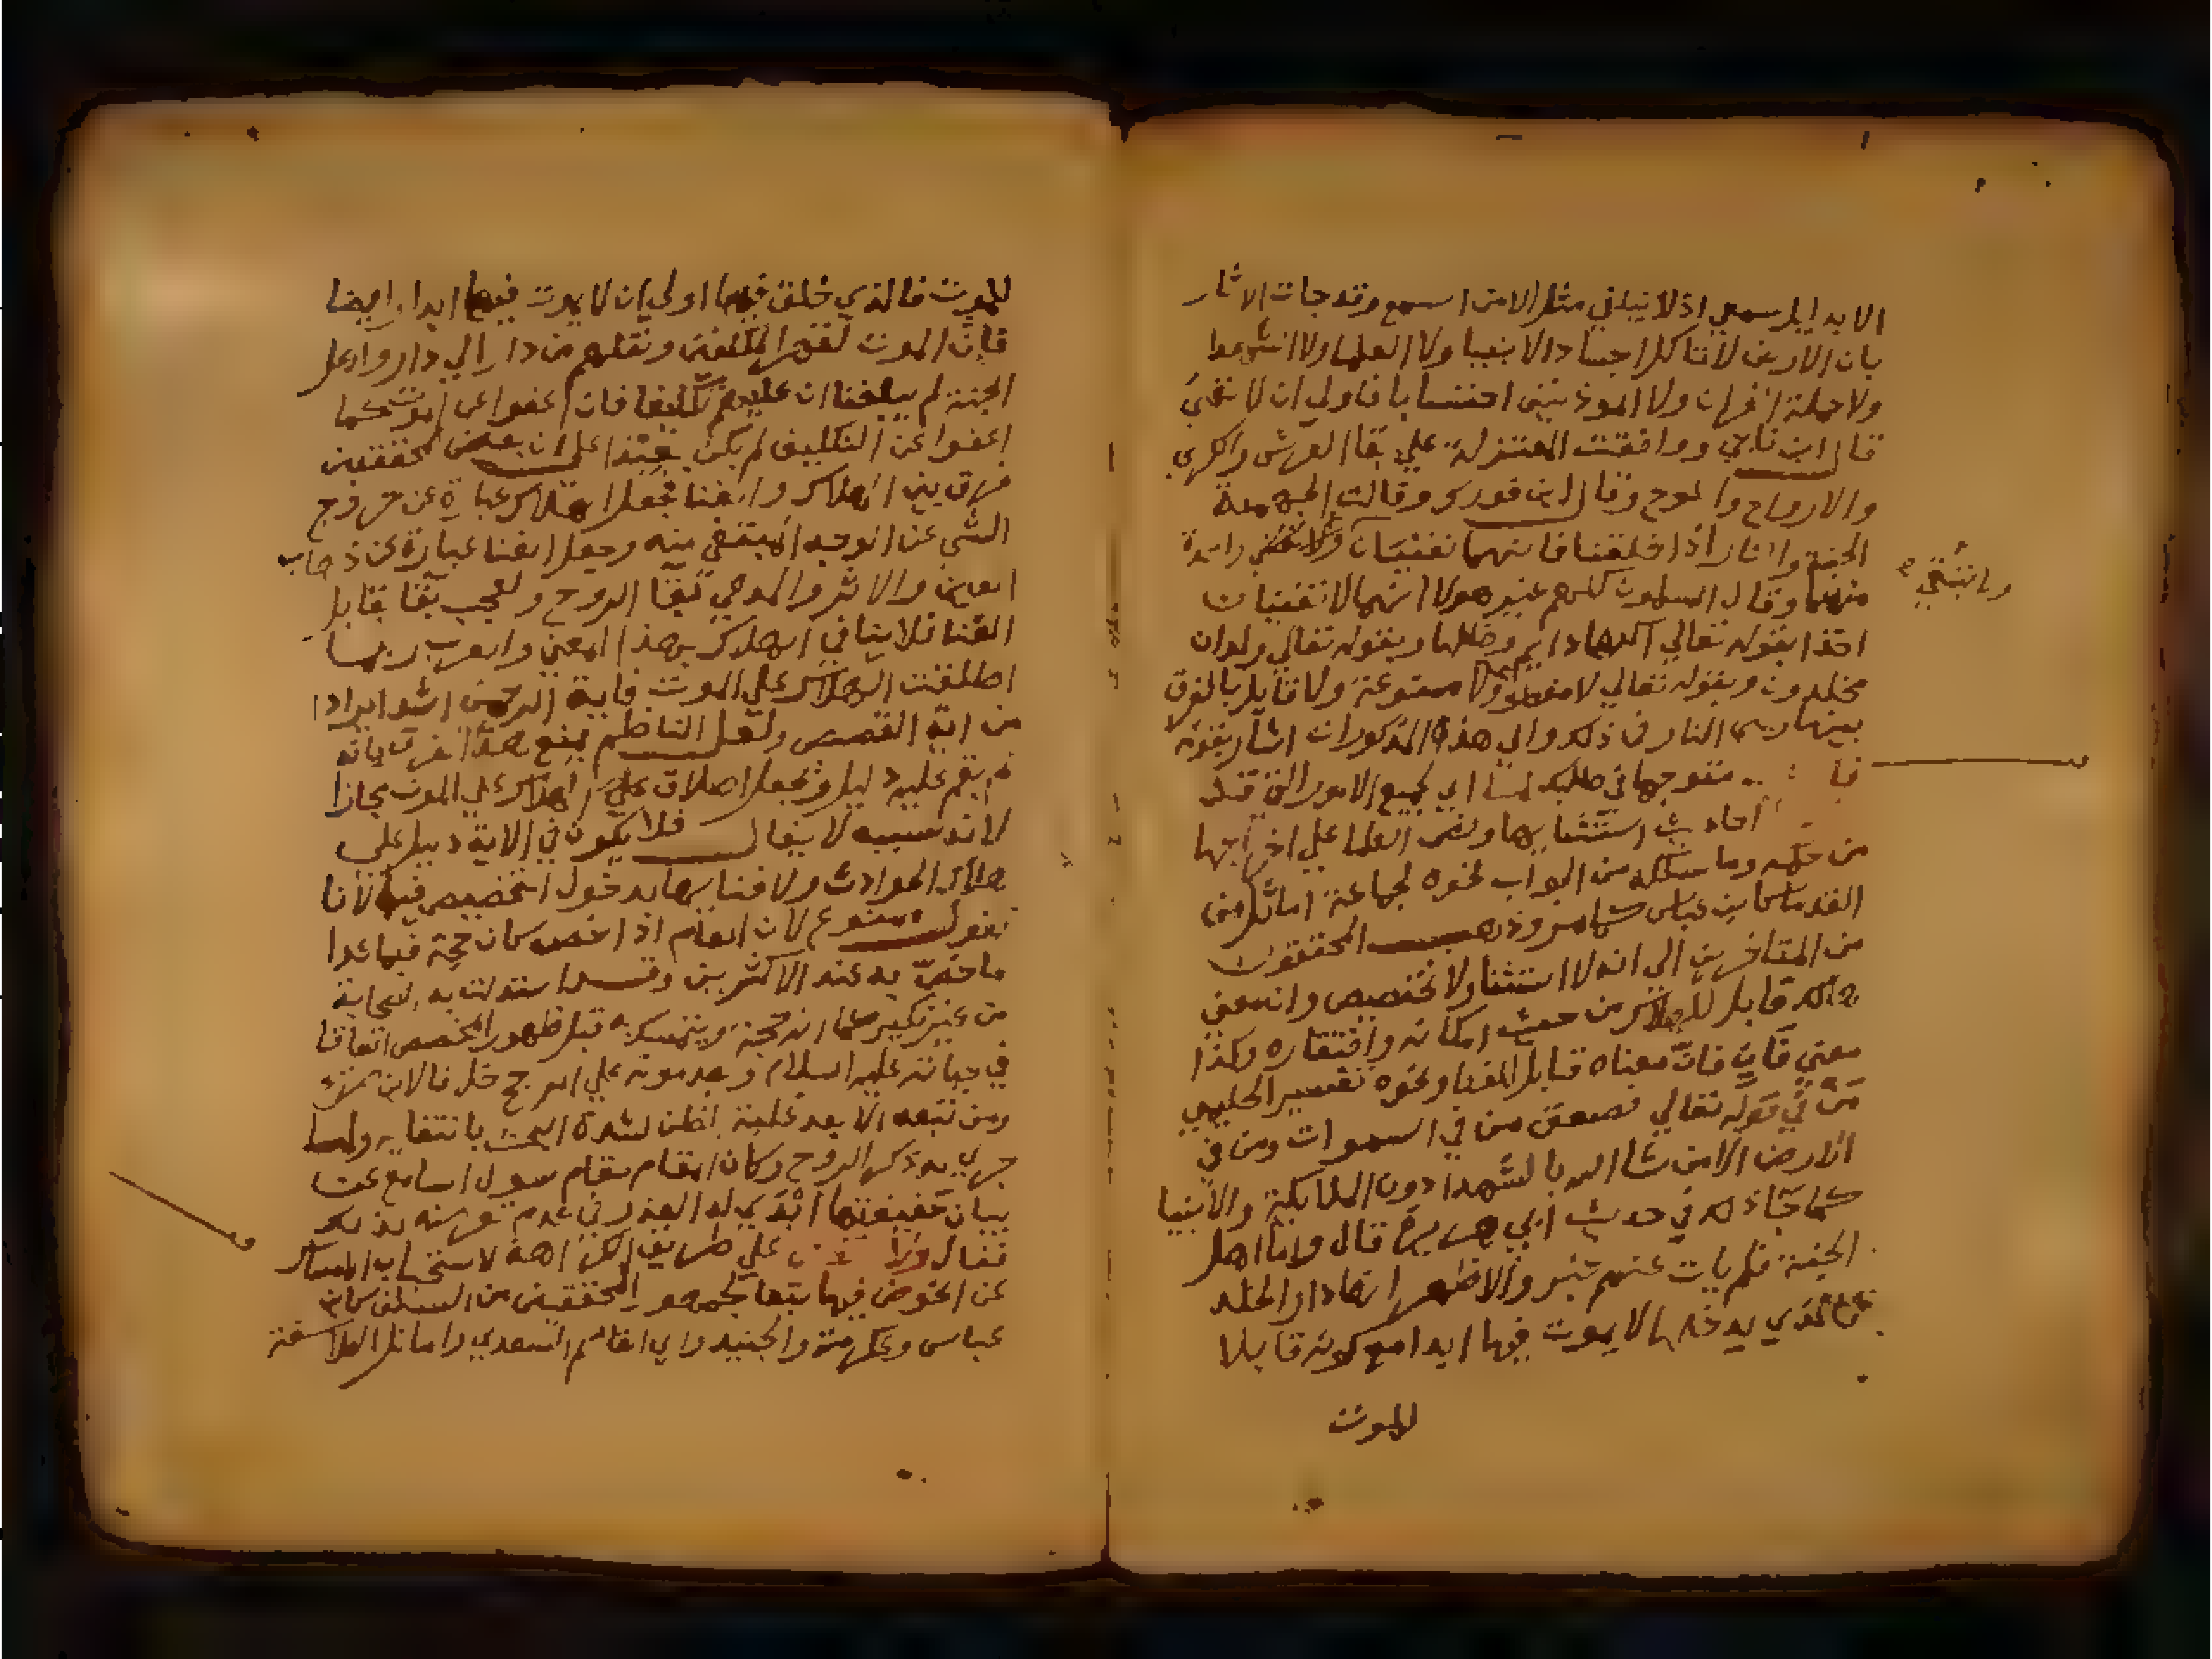 بان الارض لا تاكل اجساد الانبيا ولا العلما ولا الشهدا
ولا حملة القران ولا الموذنين احتسابا فاولي ان لا تفني
قال ابن ناجي ووافقت المعتزلة علي بقا العرش والكرسي
والارواح واللوح وقال ابن فورك وقالت الجهمية
الجنة والنار اذا خلقتا فانهما تفنيان
منهما وقال المسلمون كلهم غير هولا انهما لا تفنيان
اخذا بقوله تعالي اكلها دايم وظلها وبقوله تعالي ولدان
مخلدون وبقوله تعالي لا مقطوعة ولا ممنوعة ولا قايل بالفرق
بينها وبين النار في ذلك والي هذه المذكورات اشار بقوله
متوجها في طلبك لما اي لجميع الامور التي قد
احاديث استثنابها ونص العلما علي اخراجها
من حكمه وما سلكه من الجواب نحوه لجماعة اماثل من
القدما كابن عباس كما مر وذهب المحققون
من المتاخرين الي انه لا استثنا ولا تخصيص وان معني
هالك قابل للهلاك من حيث امكانه وافتقاره وكذا
معني فان فان معناه قابل للفنا ونحوه تفسير الحليمي
من في قوله تعالي فصعق من في السموات ومن في
الارض الا من شا الله بالشهدا دون الملايكة والانبيا
كما جا ذلك في حديث ابي هريرة قال واما اهل
الجنة فلم يات عنهم خبر والاظهر انها دار الخلد
فالذي يدخلها لا يموت فيها ابدا مع كونه قابلا
للموت
للموت فالذي خلق فيها اولي ان لا يموت فيها ابدا وايضا
فان الموت لقهر المكلفين ونقلهم من دار الي دار واهل
الجنة لم يبلغنا ان عليهم تكليفا فان اعفوا عن الموت كما
اعفوا عن التكليف لم يكن بعيدا علي ان بعض المحققين
فرق بين الهلاك والفنا فجعل الهلاك عبارة عن خروج
الشي عن الوجه المبتغي منه وجعل الفنا عبارة عن ذهاب
العين والاثر والمدعي بقا الروح والعجب بقا قابل
الفنا فلا ينافي الهلاك بهذا المعني والعرب ربما
اطلقت الهلاك علي الموت فاية الرحمن اشد ايرادا
من اية القصص ولعل الناظم يمنع هذا الفرق بانه
لم يقم عليه دليل ويجعل اطلاق الهلاك علي الموت مجازا
لانه سببه لا يقال فلا يكون في الاية دليل علي
هلاك الحوادث ولا فنايها بدخول التخصيص فيه لانا
نقول ممنوع لان العام اذا خص كان حجة فيما عدا
ما خص به عند الاكثرين وقد استدلت به الصحابة
من غير نكير كما انه حجة ويتمسك به قبل ظهور المخصص اتفاقا
في حياته عليه السلام وبعد موته علي المرجح خلافا لابن سريج
ومن تبعه الا بعد غلبة الظن لشدة البحث بانتفايه ولما
جري به ذكر الروح وكان المقام مقام سوال السامع عن
بيان حقيقتها ابدي له العذر في عدم تعرضه لذلك
فقال علي طريق الكراهة لاستحباب الامساك
عن الخوض فيها تبعا لجمهور المحققين من السلف كابن
عباس وعكرمة والجنيد وابي القاسم السعدي واماثل الفلاسفة